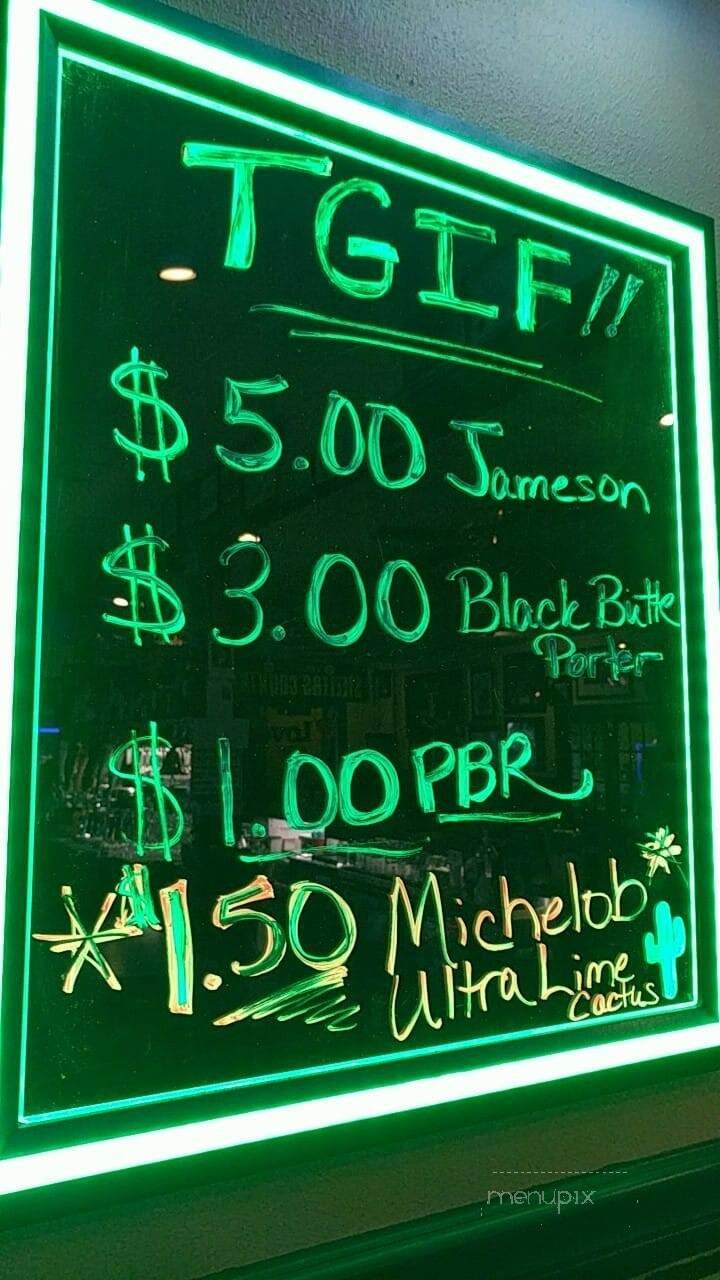 TGIF!!
$5.00 Jameson
$3.00 Black Butte
Porter
$1.00 PBR
*$1.50 Michelob
Ultra Lime
Cactus
menupix